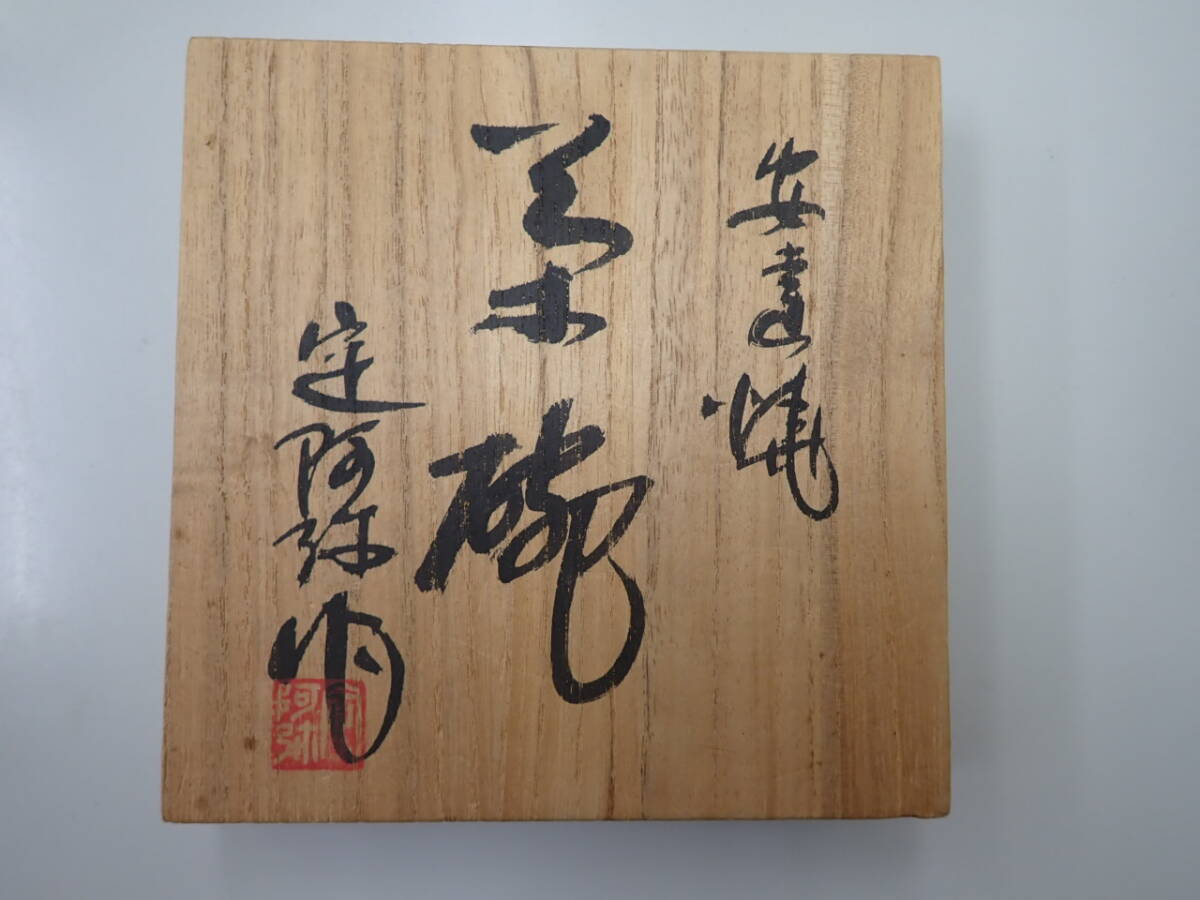 安達焼
茶碗
定阿弥
定阿弥